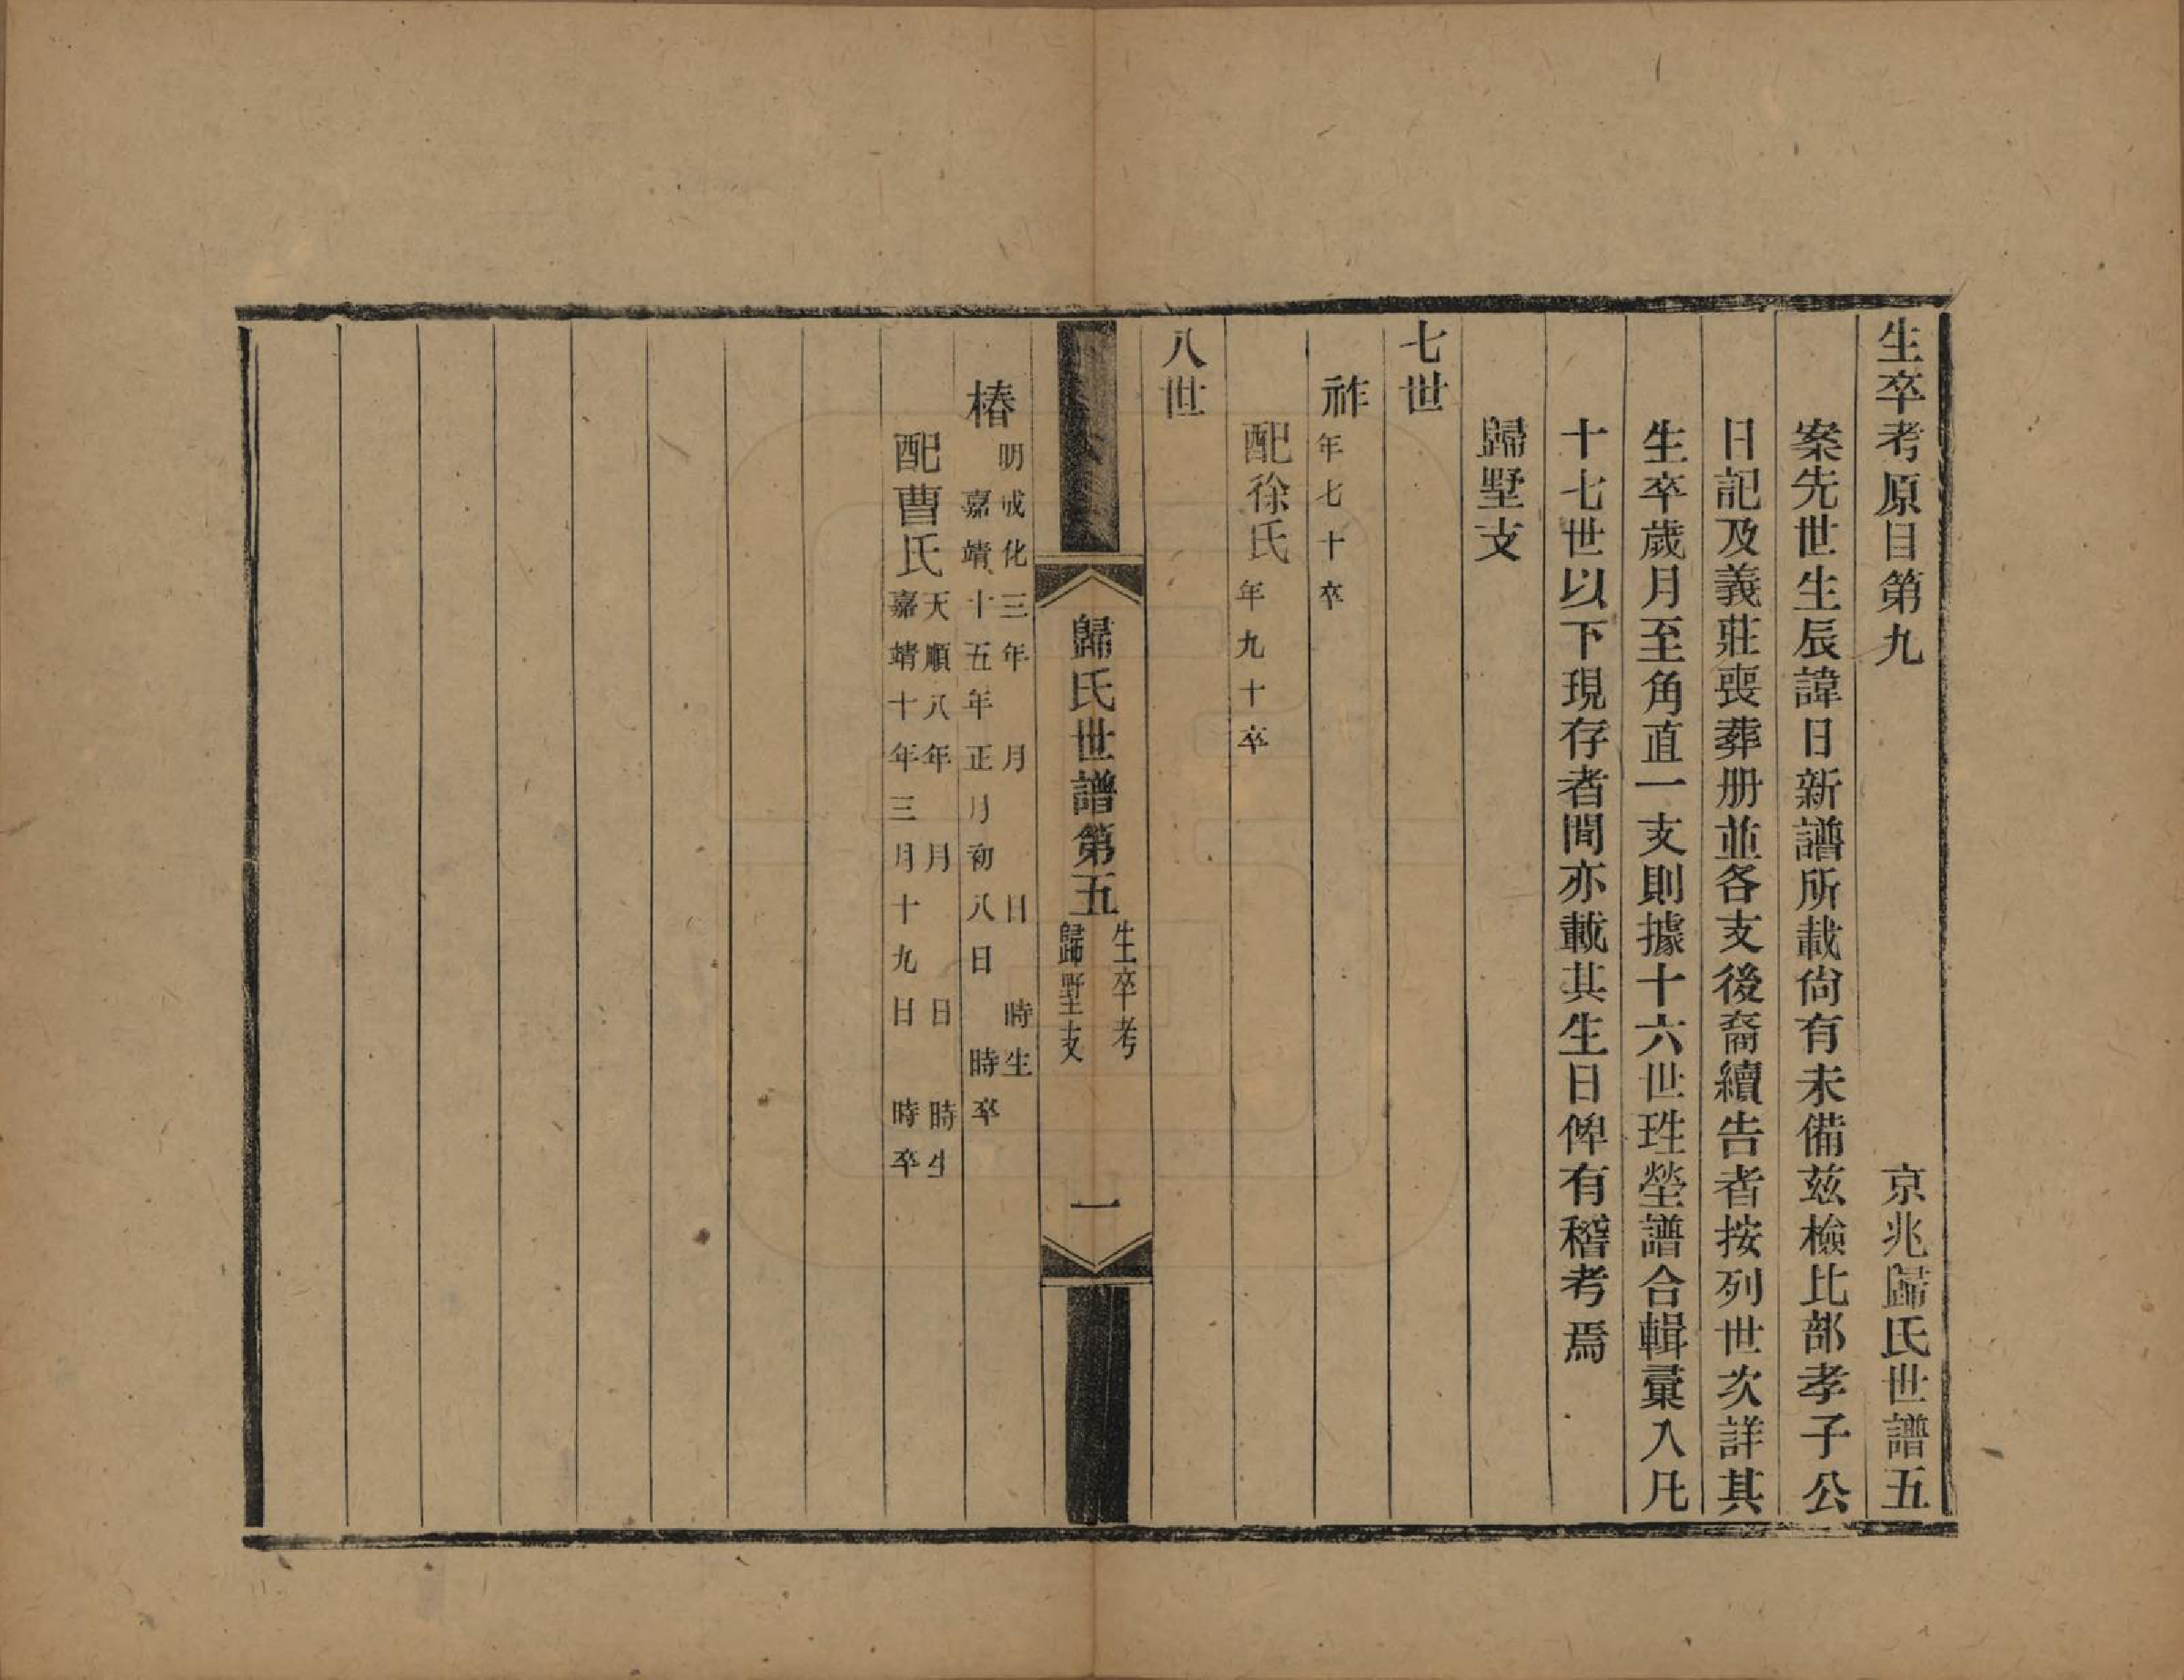 生卒考原目第九　　京兆歸氏世譜五
案先世生辰諱日新譜所載尙有未備茲檢比部孝子公
日記及義莊喪葬册並各支後裔續告者按列世次詳其
生卒歲月至角直一支則據十六世珄塋譜合輯彙入凡
十七世以下現存者間亦載其生日俾有稽考焉
歸墅支
七世
祚年七十卒
配徐氏年九十卒
八世
歸氏世譜第五
生卒考
歸墅支
一
椿
明成化三年　月　日　時生
嘉靖十五年正月初八日　時卒
配曹氏
天順八年　月　日　時生
嘉靖十年三月十九日　時卒